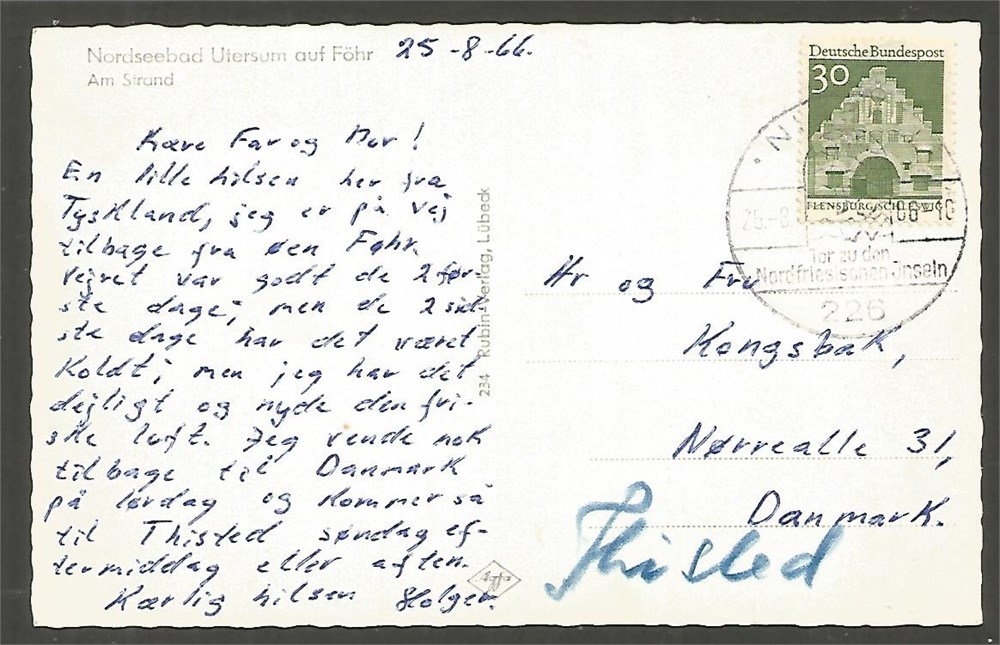 Nordseebad Utersum auf Föhr
Am Strand
25-8-66.
Kære Far og Mor!
En lille hilsen her fra
Tyskland, jeg er på vej
tilbage fra øen Føhr
vejret var godt de 2 før-
ste dage; men de 2 sid-
ste dage har det været
koldt; men jeg har det
dejligt og nyde den fri-
ske luft. Jeg vende nok
tilbage til Danmark
på lørdag og kommer så
til Thisted søndag ef-
termiddag eller aften.
Kærlig hilsen Holger.
234 Rubin-Verlag, Lübeck
Deutsche Bundespost
30
FLENSBURG/SCHLESWIG
25.-8.
Tor zu den
Nordfriesischen Inseln
226
Hr og Fru
Kongsbak,
Nørrealle 31,
Danmark.
Thisted